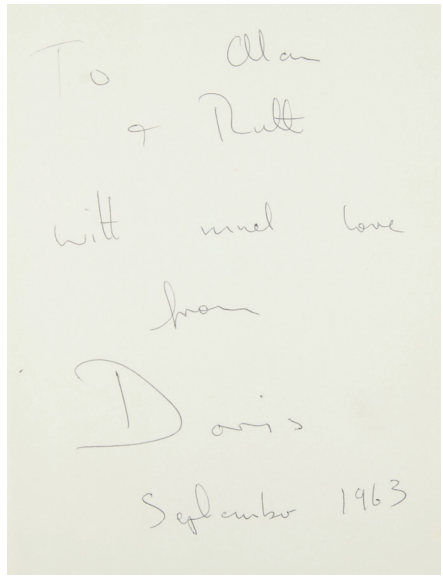 To Alan
& Ruth
with much love
from
Doris
September 1963